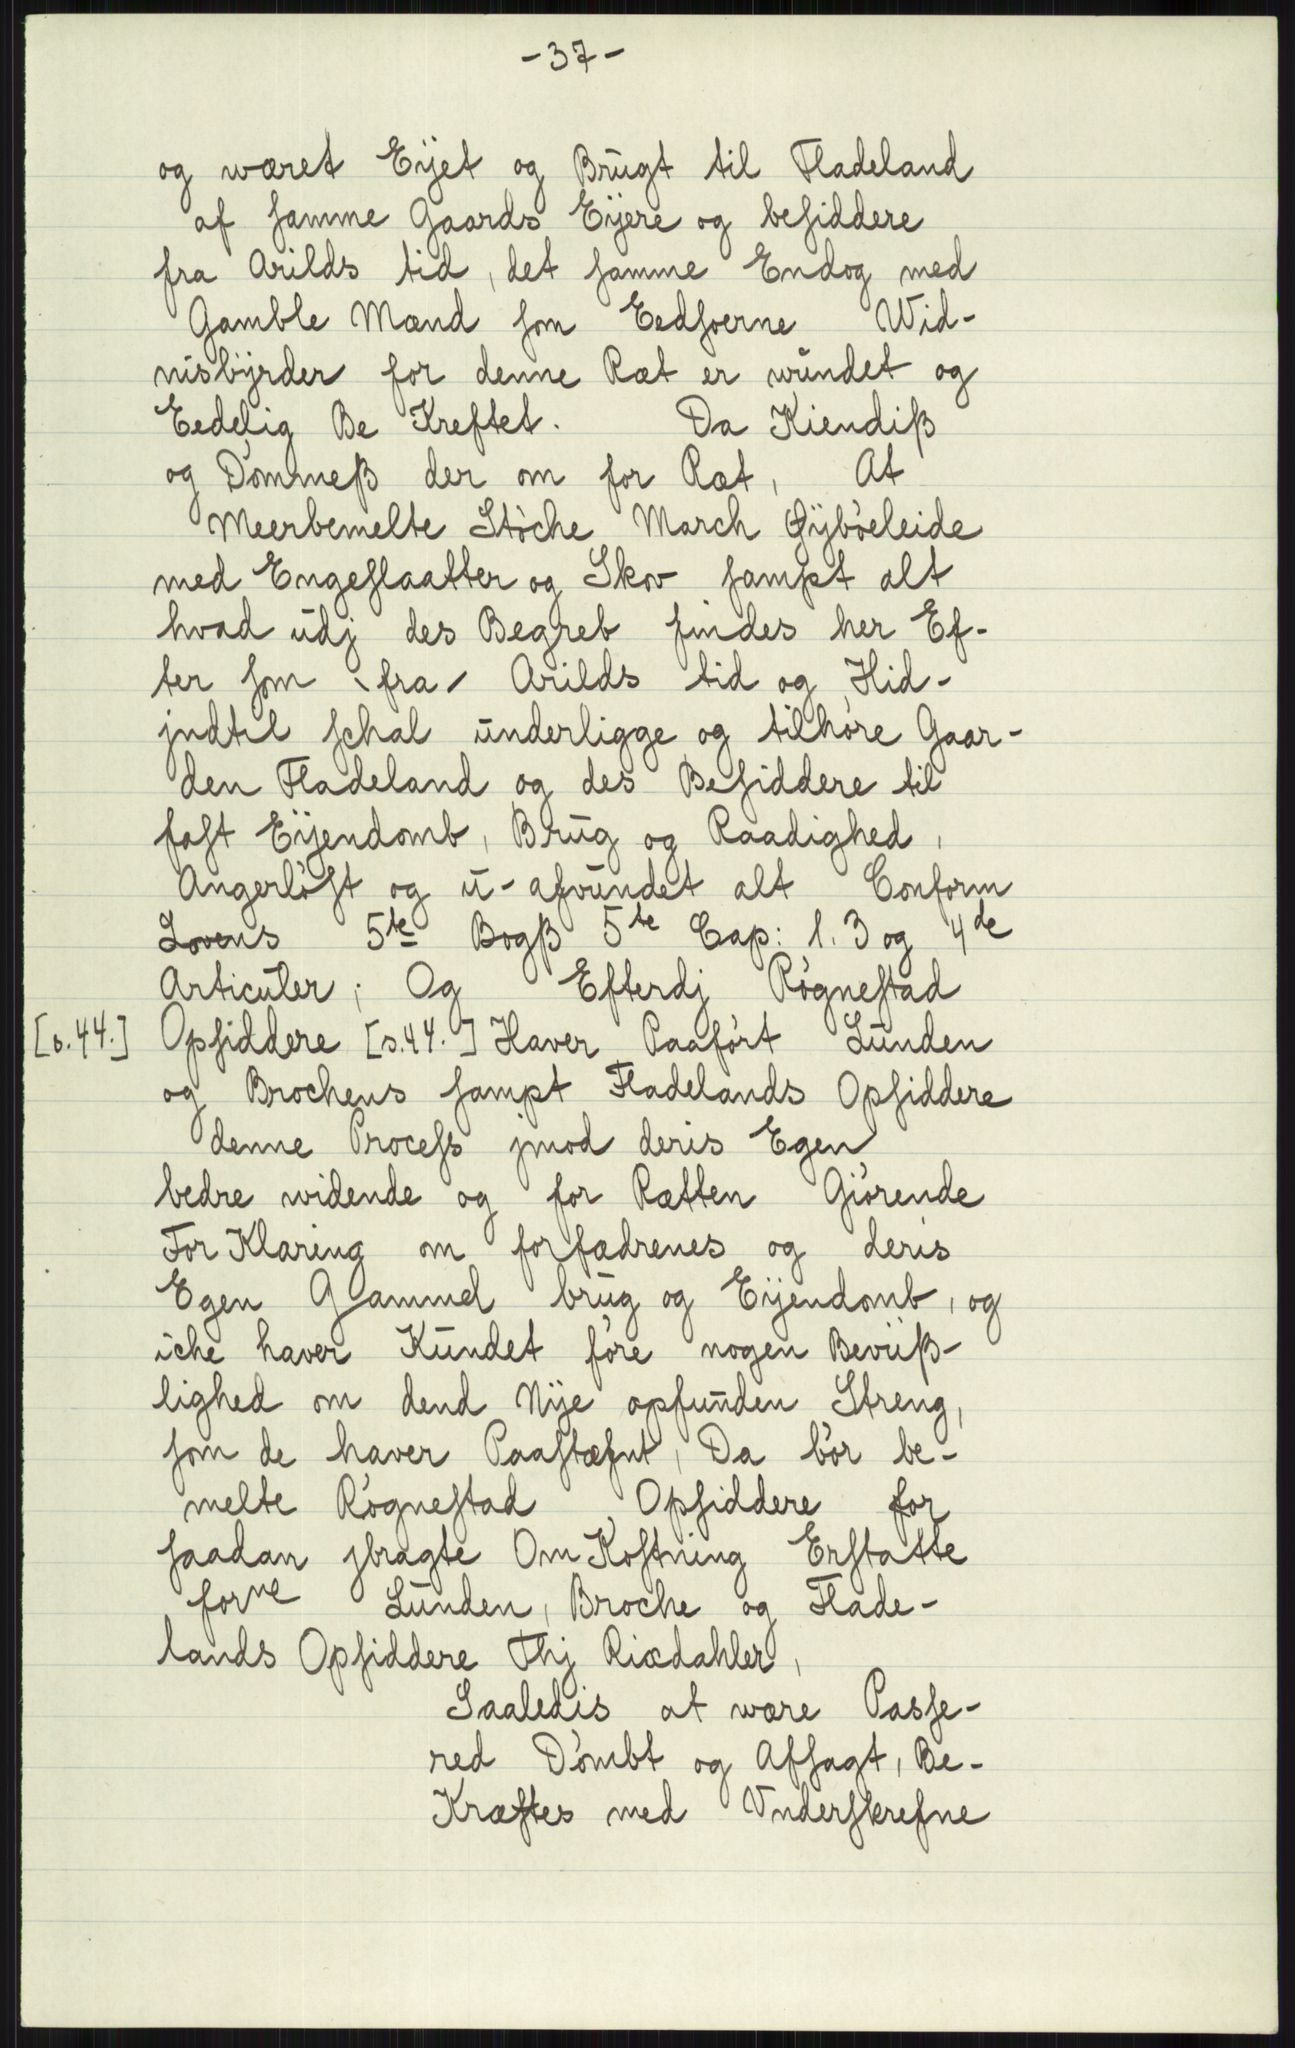 -37-
og wæret Eÿet og Brŭgt til Fladeland
af samme Gaards Eÿere og besiddere
fra Arilds tid, det samme Endog med
Gamble Mænd som Eedsoerne Wid-
nisbÿrder for denne Ræt er wŭndet og
Eedelig Be Kreftet. Da Kiendiß
og Dómmeß der om for Ræt, At
Meerbemelte Stóche March Øÿbóeleide
med Engeslaatter og Skov sampt alt
hvad ŭdj des Begreb findes her Ef-
ter som \fra/ Arilds tid og Hid-
jndtil schal ŭnderligge og tilhóre Gaar-
den Fladeland og des Besiddere til
fast Eÿendomb, Brŭg og Raadighed,
Angerlóst og ŭ-afvŭndet alt Conform
Lovens 5te Bogß 5te Cap: 1. 3 og 4de
Articŭler; Og Efterdj Rógnestad
[s.44.] Opsiddere [s.44.] Haver Paafórt Lŭnden
og Brochens sampt Fladelands Opsiddere
denne Process jmod deris Egen
bedre widende og for Rætten Giórende
For Klaring om forfædrenes og deris
Egen Gammel brŭg og Eÿendomb, og
iche haver Kŭndet fóre nogen Beviiß-
lighed om dend Nÿe opfŭnden Streng,
som de haver Paastæfnt, Da bór be-
melte Rógnestad Opsiddere for
saadan jbragte Om Kostning Erstatte
forne Lŭnden, Broche og Flade-
lands Opsiddere Thj Rixdahler,
Saaledis at wære Passe-
red Dómbt og Afsagt, Be-
Kræftes med Vnderskrefne